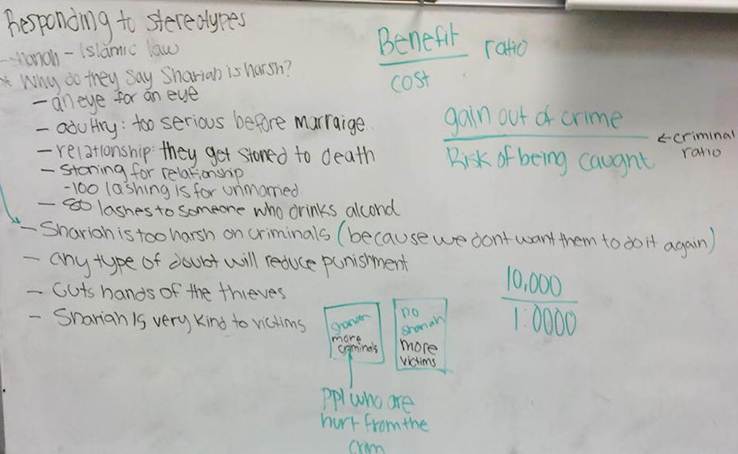 Responding to stereotypes
- shariah - Islamic law
* Why do they say Shariah is harsh?
- an eye for an eye
- adultry: too serious before marraige
- relationship: they get stoned to death
- stoning for relationship
- 100 lashing is for unmarried
- 80 lashes to someone who drinks
- Shariah is too harsh on criminals (because we dont want them to do it again)
- any type of doubt will reduce punishment
- Cuts hands of the thieves
- Shariah is very kind to victims
Benefit ratio
cost
gain out of crime
Risk of being caught
← criminal
ratio
10,000
more
criminals
no
shariah
more
victims
ppl who are
hurt from the
crim